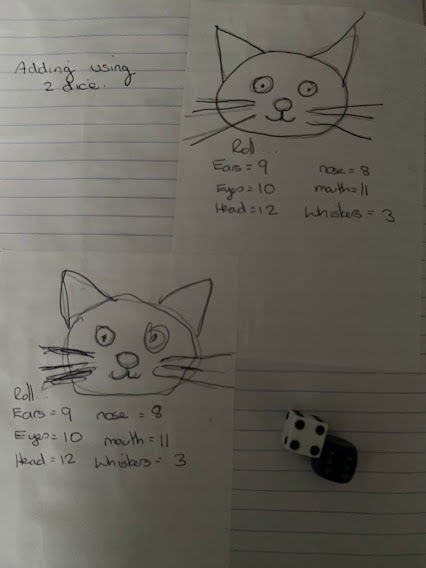 Adding using
2 dice.
Roll...
Ears = 9 nose = 8
Eyes = 10 mouth = 11
Head = 12 Whiskers = 3
Roll...
Ears = 9 nose = 8
Eyes = 10 mouth = 11
Head = 12 Whiskers = 3